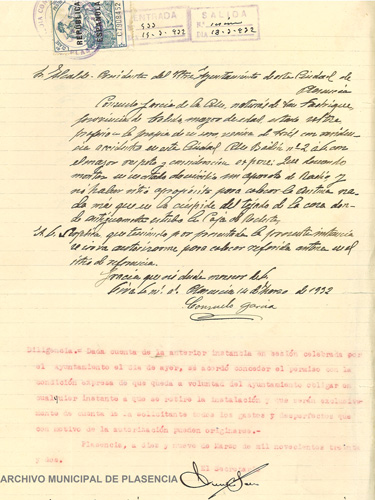 REPUBLICA
ESPAÑOLA
ENTRADA
SALIDA
N.º 533
DIA 18-3-932
Sr. Alcalde Presidente del Ayuntamiento de esta Ciudad de
Plasencia
Consuelo Garcia de la natural de
provincia de Toledo mayor de edad estado
con residencia
en esta Ciudad Calle nº 2 à V. con
el mayor respeto y consideracion expone: Que deseando
montar en su domicilio un aparato de Radio y
no haber sitio apropósito para colocar la antena na-
da más que en la cúspide del tejado de la casa don-
de antiguamente estaba la Caja de Recluta;
Suplica que teniendo por presentada la presente instancia
se sirva autorizarme para colocar referida antena en el
sitio de referencia.
Gracia que
Plasencia 14 de Marzo de 1932
Consuelo Garcia
Diligencia.- Dada cuenta de la anterior instancia en sesión celebrada por
el ayuntamiento el día de ayer, se acordó conceder el permiso con la
condición expresa de que queda a voluntad del ayuntamiento obligar en
cualquier instante a que se retire la instalación y que serán exclusiva-
mente de cuenta de la solicitante todos los gastos y desperfectos que
con motivo de la autorización pueden originarse.-
Plasencia, a diez y nueve de Marzo de mil novecientos treinta
y dos.
El Secretario
ARCHIVO MUNICIPAL DE PLASENCIA